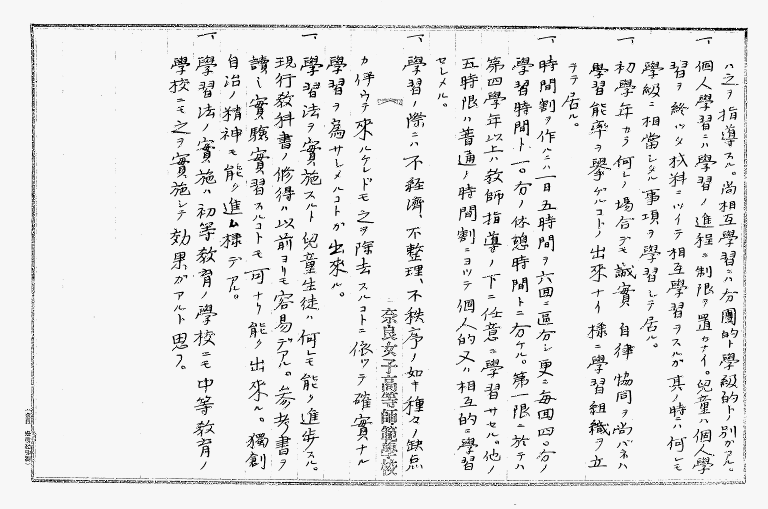 ハ之ヲ指導スル。尚相互學習ニハ分團的ト學級的トノ別ガアル。
一、個人學習ニハ學習ノ進程ニ制限ヲ置カナイ。兒童ハ個人學
習ヲ終ツタ材料ニツイテ相互學習ヲスルガ其ノ時ニハ何レモ
學級ニ相當シタル事項ヲ學習シテ居ル。
一、初學年カラ何レノ場合デモ誠實 自律 協同ヲ尚バネハ
學習能率ヲ擧ゲルコトノ出來ナイ様ニ學習組織ヲ立
テテ居ル。
一、時間割ヲ作ルニハ一日五時間ヲ六回ニ區分シ更ニ毎回四〇分ノ
學習時間ト一〇分ノ休憩時間トニ分ケル。第一限ニ於テハ
第四學年以上ハ教師指導ノ下ニ任意ニ學習サセル。他ノ
五時限ハ普通ノ時間割ニヨツテ個人的又ハ相互的ニ學習
セシメル。
一、學習ノ際ニハ不經濟、不整理、不秩序ノ如キ種々ノ缺点
奈良女子高等師範學校
ガ伴ウテ來ルケレドモ之ヲ除去スルコトニ依ツテ確實ナル
學習ヲ爲サシメルコトガ出來ル。
一、學習法ヲ實施スルト兒童生徒ハ何レモ能ク進歩スル。
現行教科書ノ修得ハ以前ヨリモ容易デアル。參考書ヲ
讀ミ實驗實習スルコトモ可ナリ能ク出來ル。獨創
自治ノ精神モ能ク進ム様デアル。
一、學習法ノ實施ハ初等教育ノ學校ニモ中等教育ノ
學校ニモ之ヲ實施シテ効果ガアルト思フ。